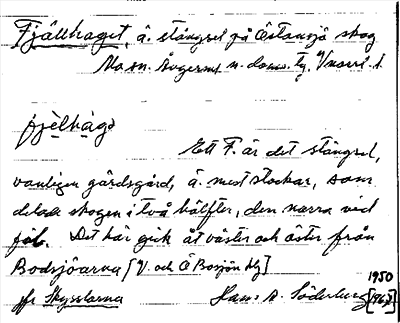 Fjällhaget, å. stängsel på Östansjö skog
Mo sn. Ångerml n. doms.
fjèlhàgə
Ett F. är det stängsel,
vanligen gärdsgård, å. med stockar, som
delade skogen i två hälfter, den norra vid
Det här gick åt väster och öster från
Bodsjöarna [V. och Ö Bosjön
jfr Skysslarna Hans A. Söderberg
1950